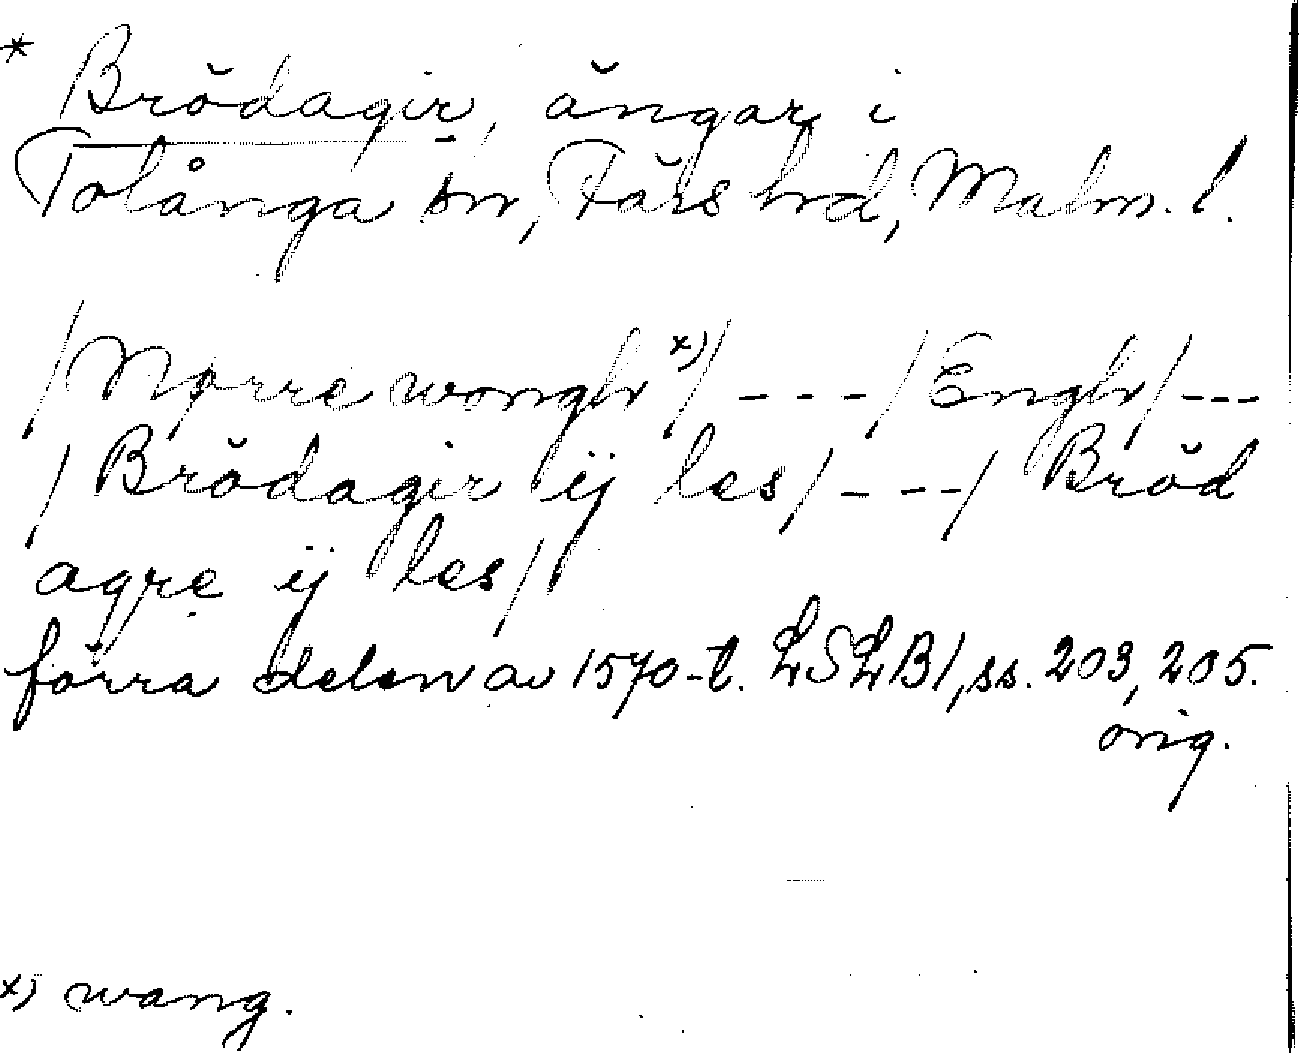 * Brödagir, ängar i
Tolånga sn, Färs hrd, Malm. l.
/Nørre wongh x)/ - - - / Engh / - - -
/ Brödagir ij les / - - - / Bröd
agre ij les /
förra delen av 1570-t. LSLB 1, ss. 203, 205.
orig.
x) wang.